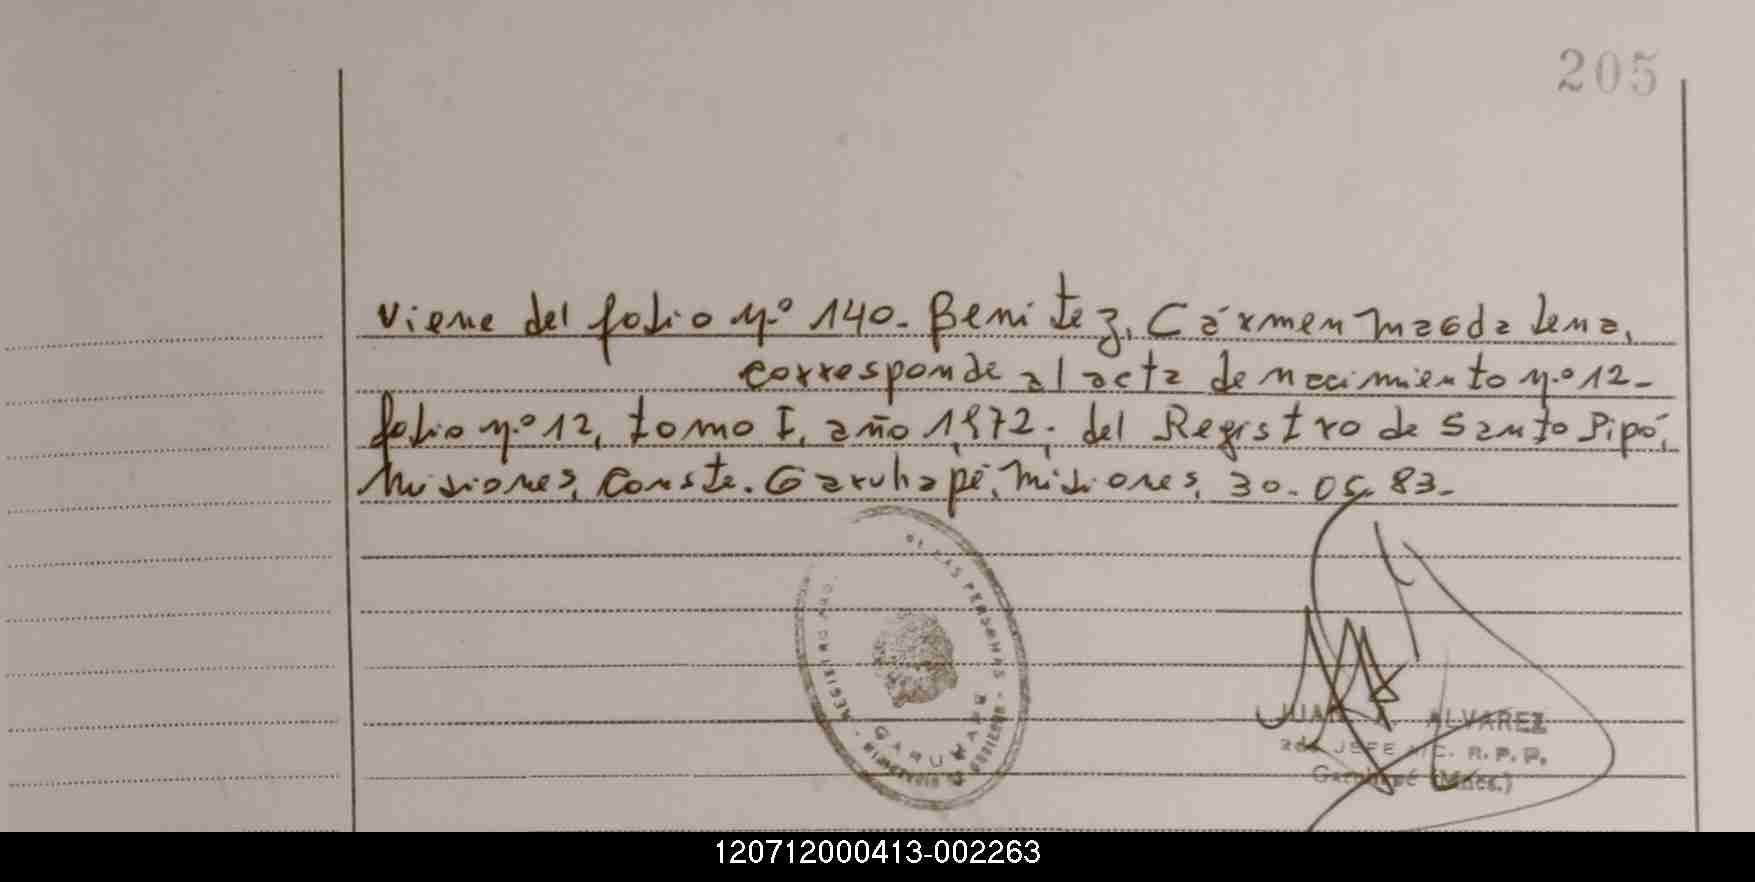 205
Viene del folio n.º 140. Benitez, Cármen Magdalena,
corresponde al acta de nacimiento n.º 12-
folio n.º 12, tomo I, año 1972. del Registro de Santo Pipó,
Misiones, Conste. Garuhapé, Misiones, 30.05.83.
DE LAS PERSONAS
REGISTRO PRO.
JUAN A. ALVAREZ
2do JEFE A/C. R.P.P.
Garuhapé (Mnes.)
120712000413-002263